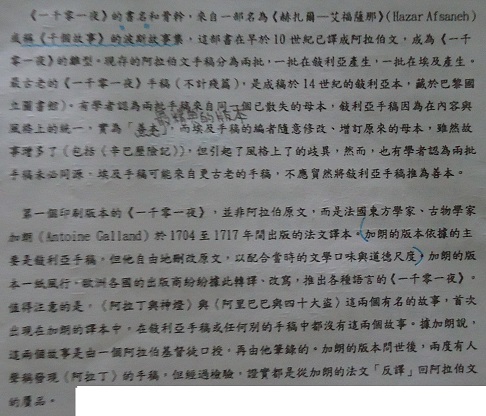 《一千零一夜》的書名和骨幹，來自一部名為《赫扎爾—艾福薩那》(Hazar Afsaneh)
《千個故事》的波斯故事集，這部書在早於10世紀已譯成阿拉伯文，成為《一千
零一夜》的雛型。現存的阿拉伯文手稿分為兩批，一批在敍利亞產生，一批在埃及產生。
最古老的《一千零一夜》手稿（不計殘篇），是成稿於14世紀的敍利亞本，藏於巴黎國
立圖書館）。有學者認為兩批手稿來自同一個已散失的母本，敍利亞手稿因為在內容與
的版本
風格上的統一，實為「善本」，而埃及手稿的編者隨意修改、增訂原來的母本，雖然故
事增多了（包括《辛巴歷險記》），但引起了風格上了的歧異，然而，也有學者認為兩批
手稿未必同源，埃及手稿可能來自更古老的手稿，不應貿然將敍利亞手稿推為善本。
第一個印刷版本的《一千零一夜》，並非阿拉伯原文，而是法國東方學家、古物學家
加朗(Antoine Galland)於1704至1717年間出版的法文譯本。加朗的版本依據的主
要是敍利亞手稿，但他自由地刪改原文，以配合當時的文學口味與道德尺度。加朗的版
本一紙風行，歐洲各國的出版商紛紛據此轉譯、改寫，推出各種語言的《一千零一夜》。
值得注意的是，《阿拉丁與神燈》與《阿里巴巴與四十大盜》這兩個有名的故事，首次
出現在加朗的譯本中，在敍利亞手稿或任何別的手稿中都沒有這兩個故事。據加朗說，
這兩個故事是由一個阿拉伯基督徒口授，再由他筆錄的。加朗的版本問世後，兩度有人
聲稱發現《阿拉丁》的手稿，但經過檢驗，證實都是從加朗的法文「反譯」回阿拉伯文
的贋品。